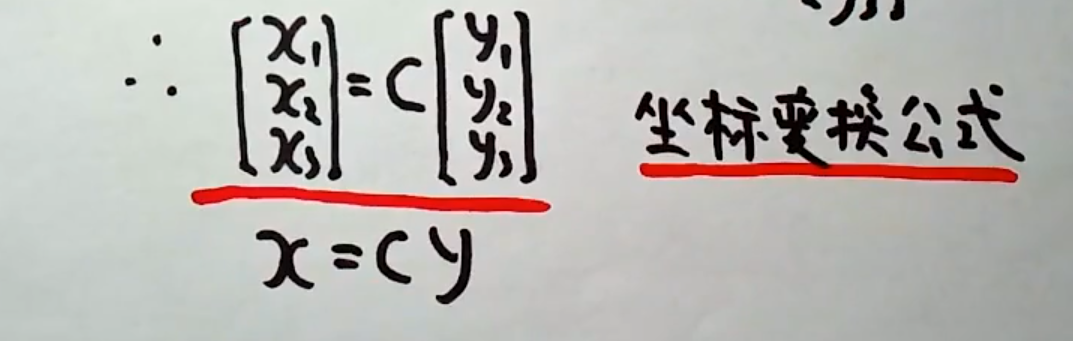 ∴ [x₁ x₂ x₃] = C [y₁ y₂ y₃]
坐标变换公式
x = C y